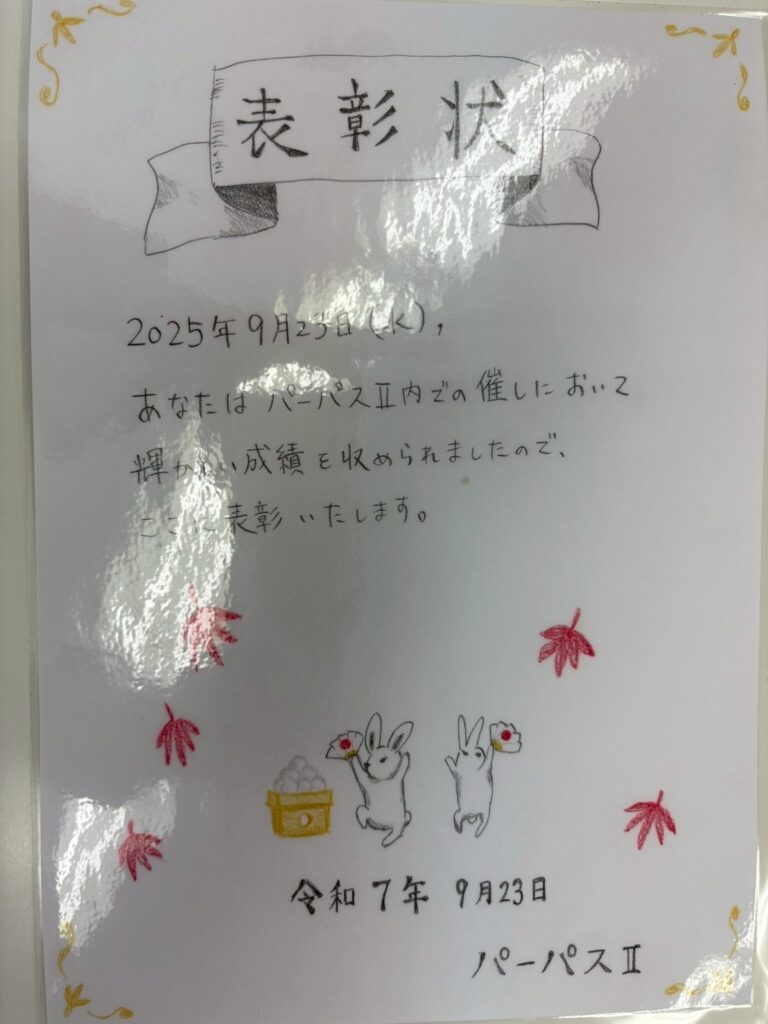 表彰状
2025年9月23日(水),
あなたはパーパスⅡ内での催しにおいて
輝かしい成績を収められましたので、
ここに表彰いたします。
令和7年 9月23日
パーパスⅡ